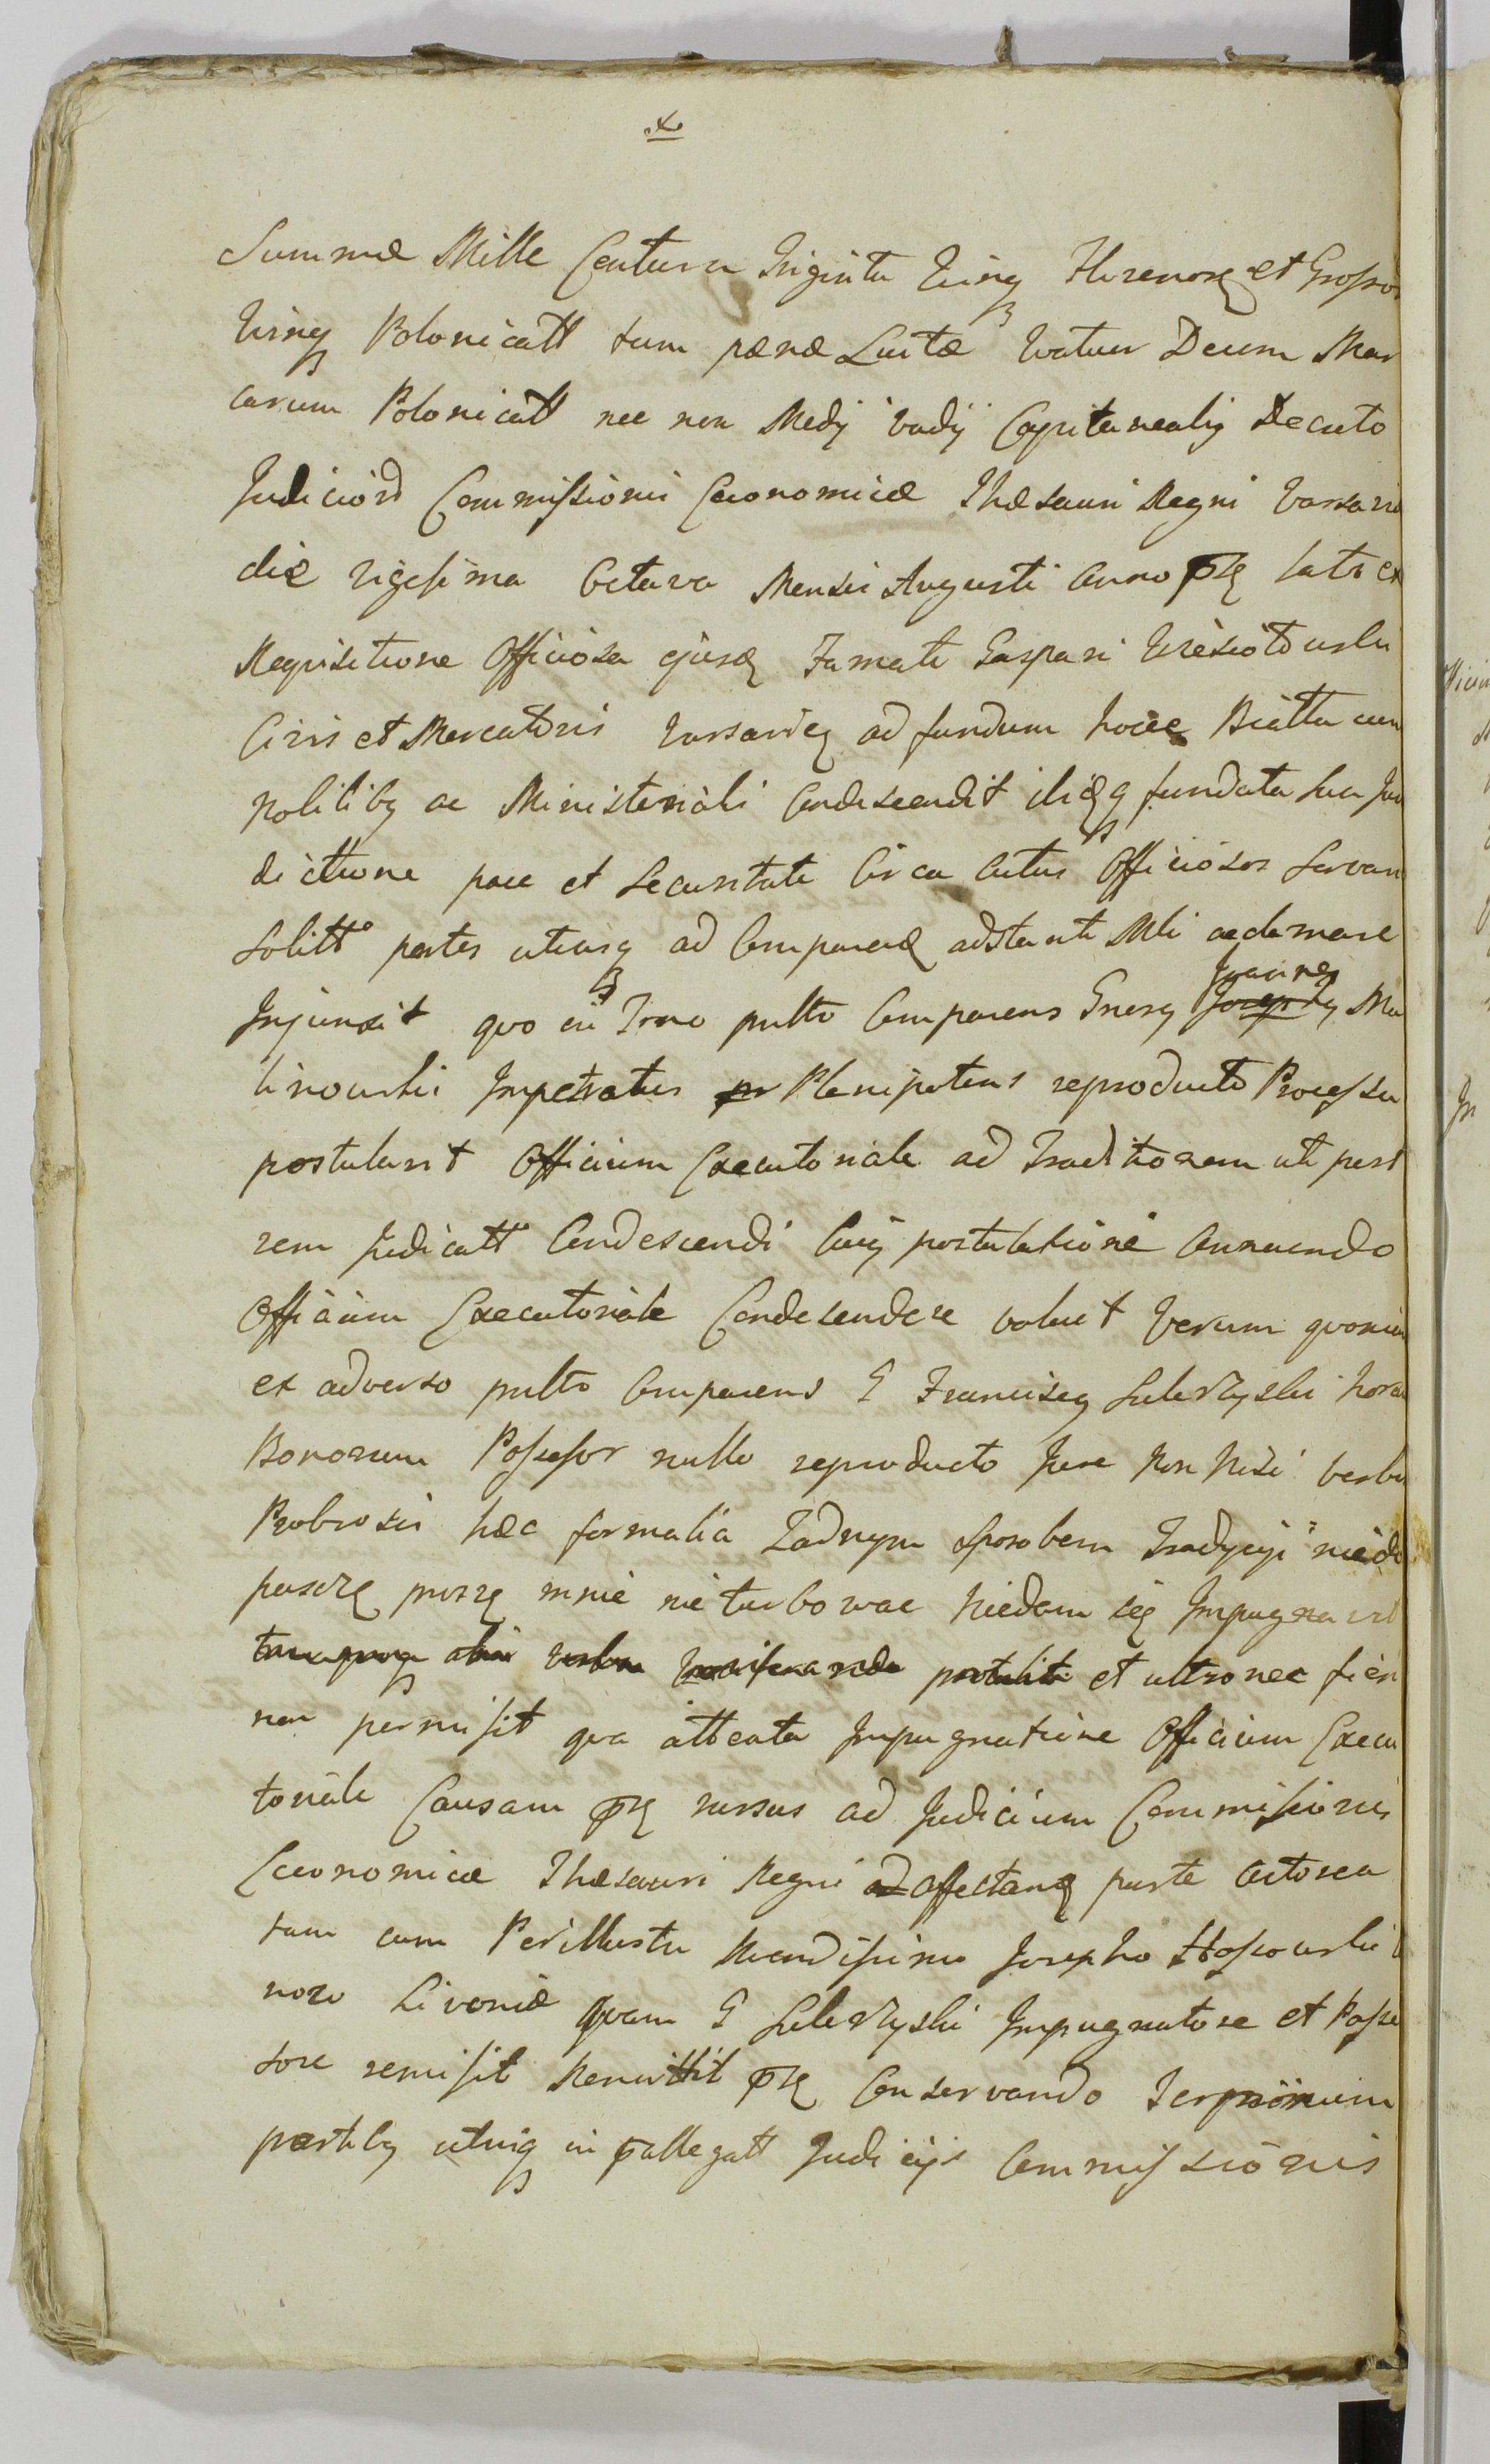 Summæ Mille Centum Triginta Quinq Florenorq et Grossor
Quinq Polonicatt tum pænæ Luitæ quatuor Decem Mar
carum Polonicatt nec non Medij vadij Capitanealis Decreto
Judiciord Commissionis Œconomicæ Thæsauri Regni Varsavi
die vigesima Octava Mensis Augusti Anno lato ex
Requisitione Officiosa ejusd Famati Gaspari
Civis et Mercatoris Varsavieq ad fundum hocce cum
Nobilibq ac Ministeriali Condescendit ibiq fundata sua Juri
dictione pace et securitate Circa Actus Officiosos servari
solitt partes utrasq ad Comparend adstanti Mli acclamare
Injunxit quo in Trno pultte Comparens Gnosq Joannes Josephq Ma
linowski Impetratus Plenipotens reproducto Processu
postulavit Officium Executoriale ad Traditionem uti post
rem Judicatt Condescendi Cuiq postulationi Annuendo
Officium Executoriale Condescendere voluit Verum quoniam
ex adverso pultte Comparens G Franciscq horu
Bonorum Possessor nullo reproducto Jure Non Nisi verbis
Probrosis hæc formalia Zadnym sposobem Tradycyi niedo
puszczę proszę mnie nie turbowac Niedam się Impugnavit
et ultronee fieri
non permisit qua attenta Impugnatione Officium Execu
toriale Causam rursus ad Judicium Commissionis
Œconomicæ Thæsauri Regni ad Affectanq parte Actorea
tam cum Perillustri Rvendissimo Josepho
noro Livoniæ quam G Impugnatore et Posse
sore remisit Remittit Conservando Terminum
partibq utrisq in pallegatt Judicijs Commissionis